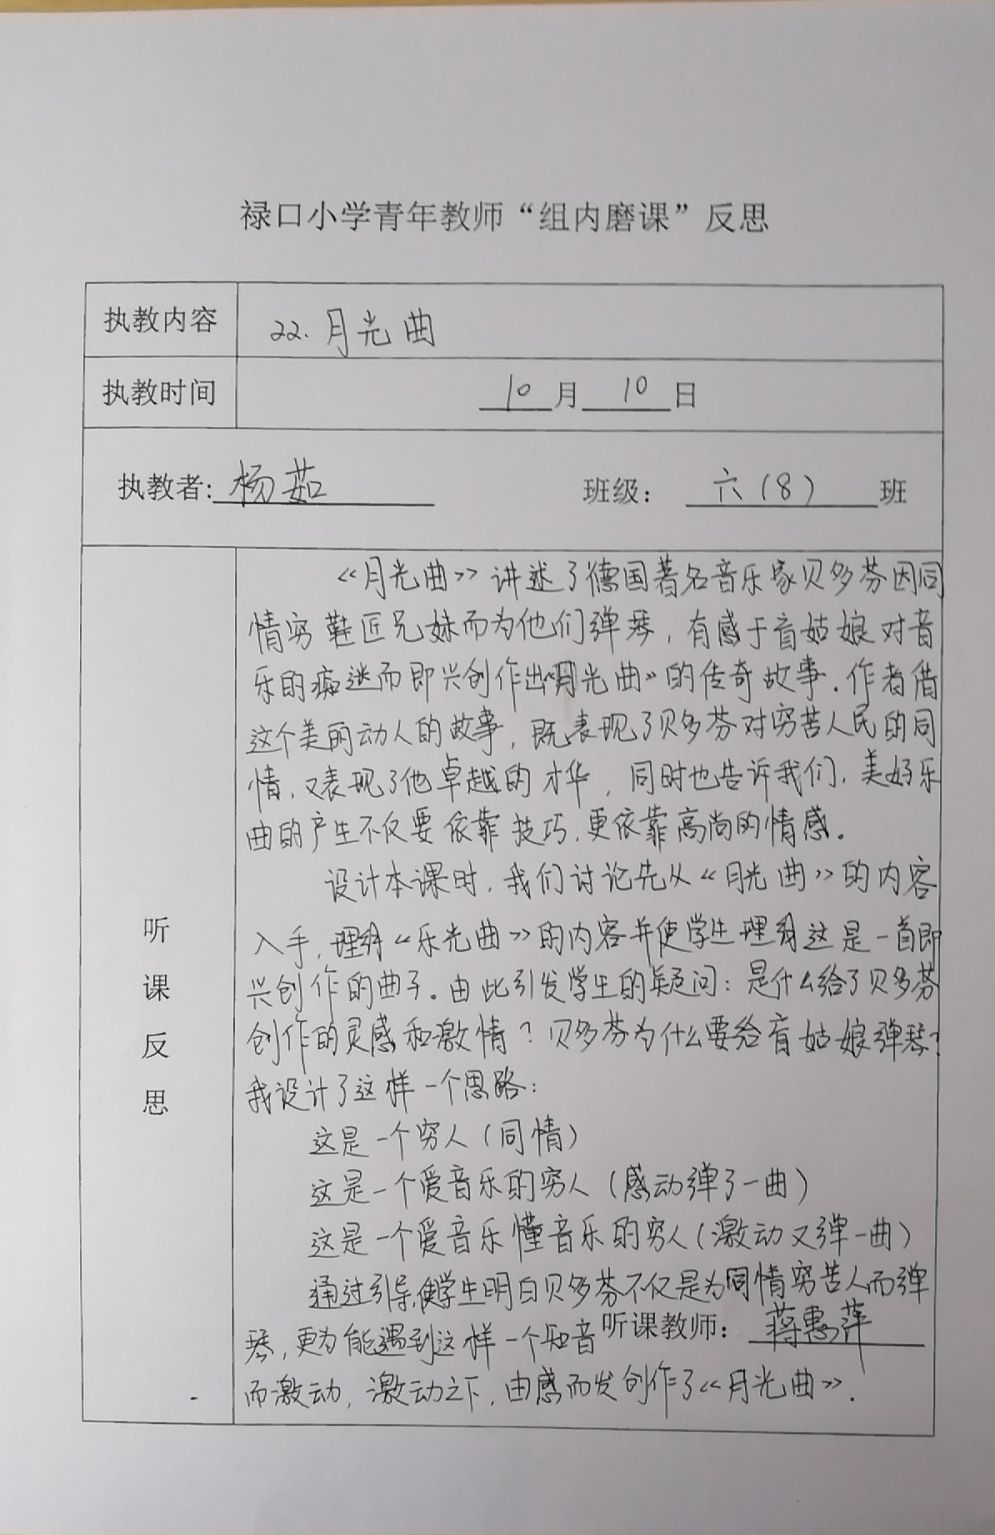 禄口小学青年教师“组内磨课”反思
执教内容 22.月光曲
执教时间 10月10日
执教者:杨茹 班级: 六(8)班
听课反思
《月光曲》讲述了德国著名音乐家贝多芬因同
情穷鞋匠兄妹而为他们弹琴,有感于盲姑娘对音
乐的痴迷而即兴创作出《月光曲》的传奇故事.作者借
这个美丽动人的故事,既表现了贝多芬对穷苦人民的同
情,又表现了他卓越的才华,同时也告诉我们,美好乐
曲的产生不仅要依靠技巧,更依靠高尚的情感。
设计本课时,我们讨论先从《月光曲》的内容
入手,理解《乐光曲》的内容并使学生理解这是一首即
兴创作的曲子。由此引发学生的疑问:是什么给了贝多芬
创作的灵感和激情?贝多芬为什么要给盲姑娘弹琴?
我设计了这样一个思路:
这是一个穷人(同情)
这是一个爱音乐的穷人(感动弹了一曲)
这是一个爱音乐懂音乐的穷人(激动又弹一曲)
通过引导,使学生明白贝多芬不仅是为同情穷苦人而弹
琴,更为能遇到这样一个知音 听课教师: 蒋惠萍
而激动,激动之下,由感而发创作了《月光曲》.